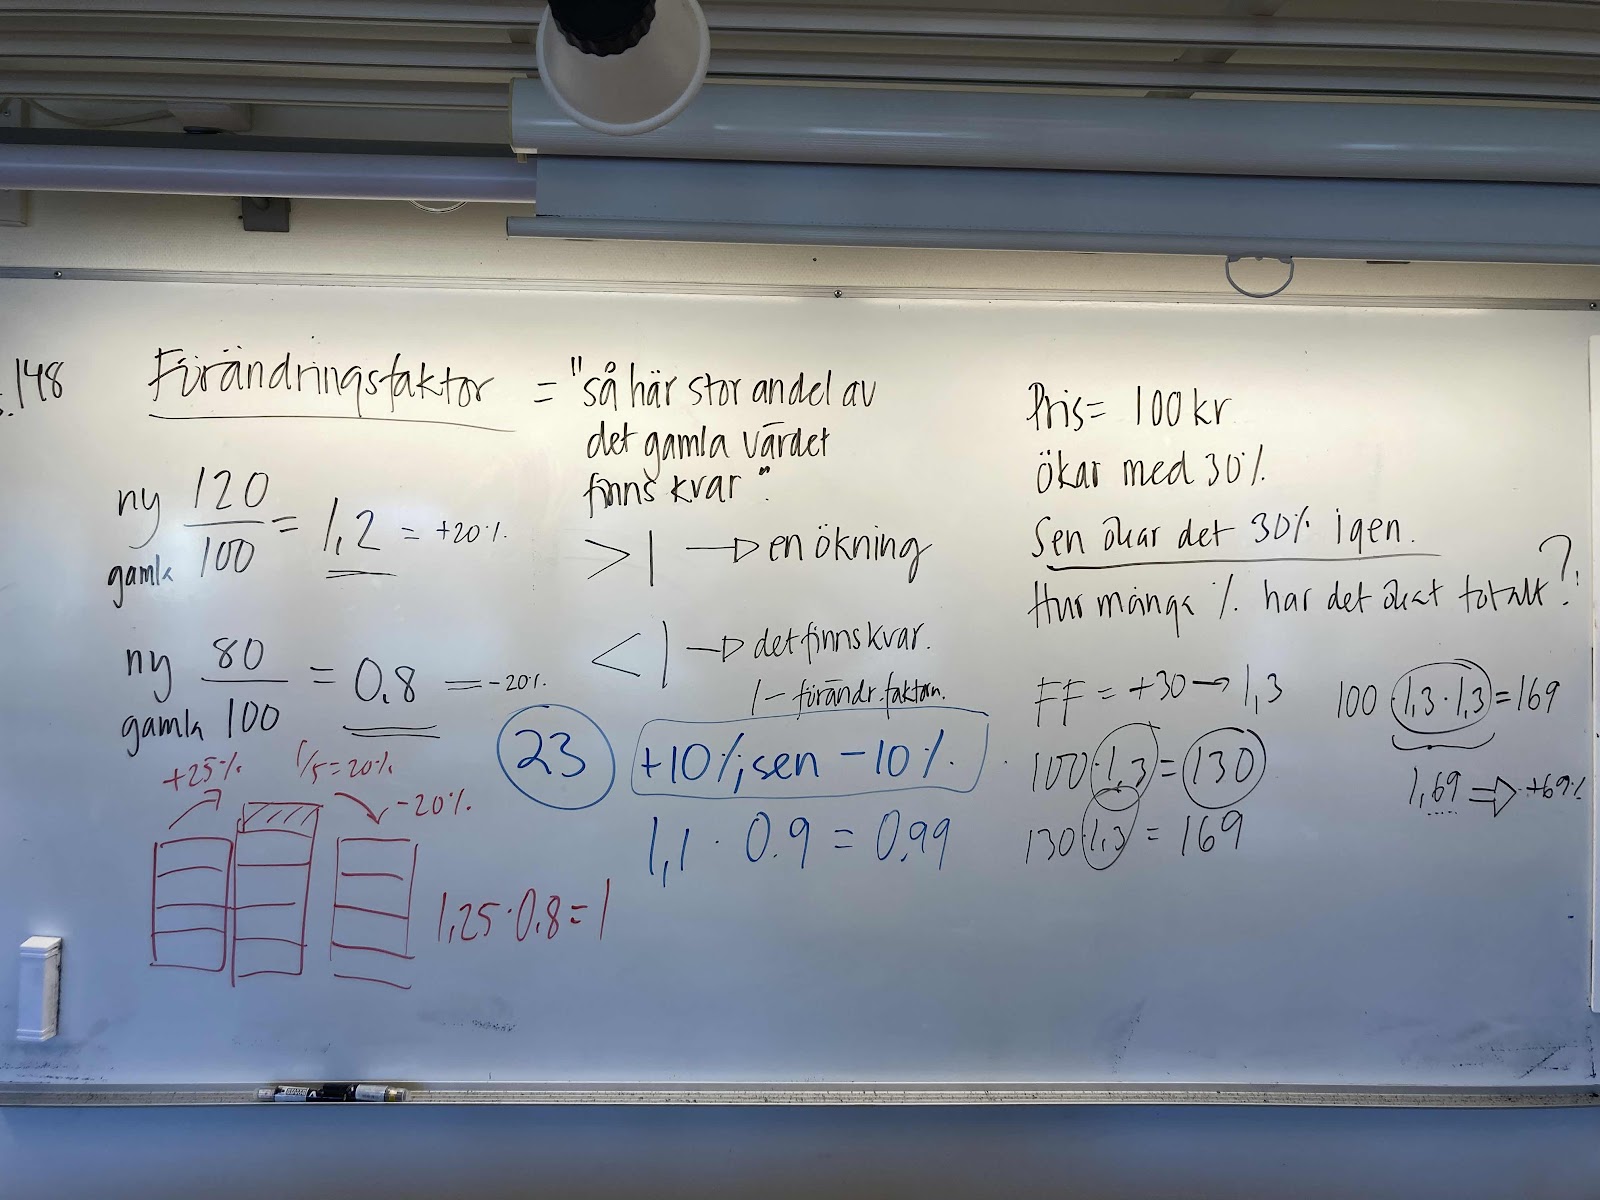 s. 148
Förändringsfaktor = "så här stor andel av
det gamla värdet
finns kvar".
ny 120
gamla 100 = 1,2 = +20%.
ny 80
gamla 100 = 0.8 = -20%.
>1 → en ökning
<1 → det finns kvar.
1 - förändr.faktorn.
+25% 1/5=20% -20%
1,25·0,8=1
23 +10%, sen -10%.
1,1 · 0.9 = 0,99
Pris= 100 kr
ökar med 30%.
Sen ökar det 30% igen.
Hur många % har det ökat totalt?
FF = +30 → 1,3
100·1,3 = 130
130·1,3 = 169
100·1,3·1,3=169
1,69 ⇒ +69%